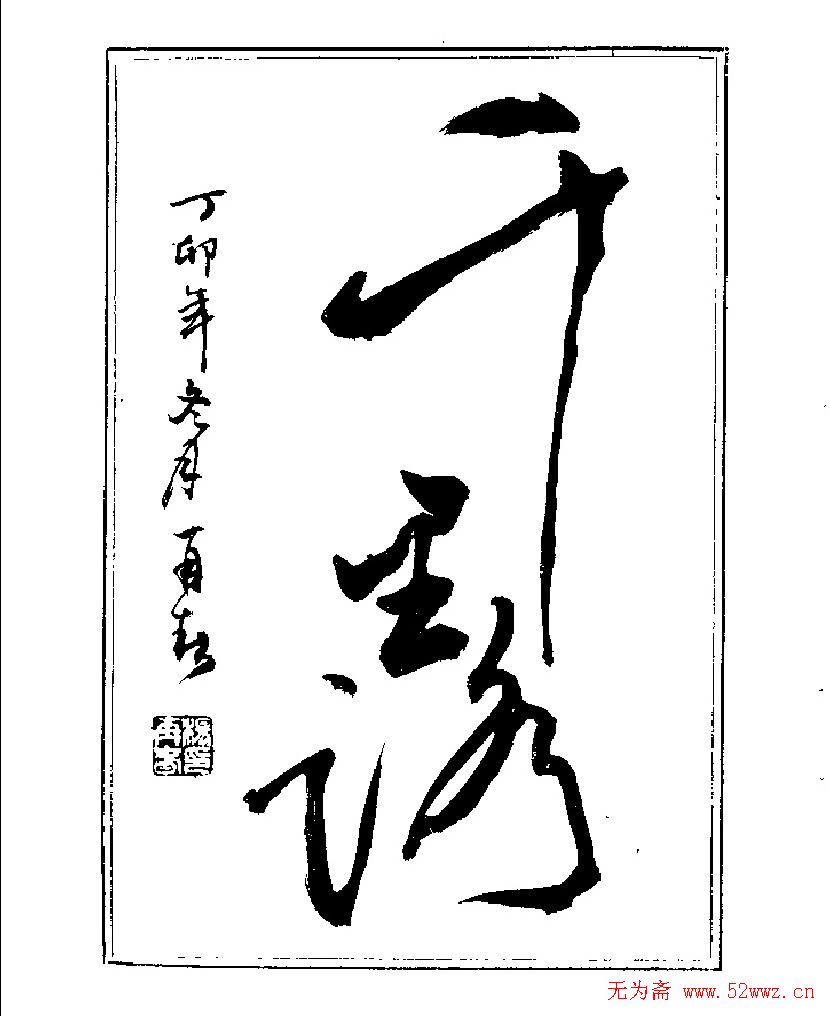 千里路
丁卯年冬月再春
杨印再春
无为斋 www.52wwz.cn